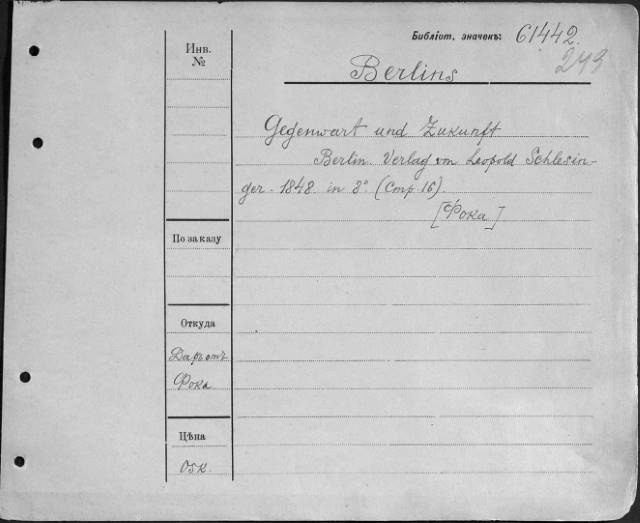 Библіот. значекъ: 61442.
243
Инв.
№
Berlins
Gegenwart und Zukunft
Berlin. Verlag von Leopold Schlesin-
ger - 1848. in 8°. (Стр. 16).
[Фока]
По заказу
Откуда
Даръ отъ
Фока
Цѣна